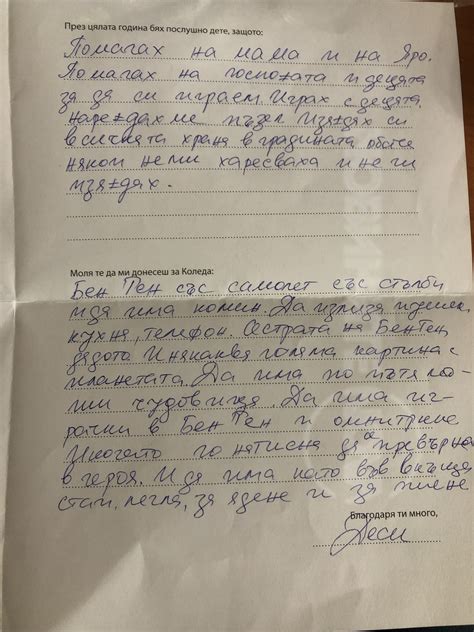 През цялата година бях послушно дете, защото:
Помагах на мама и на Яро.
Помагах на госпожата и децата
за да си играем. Играх с децата.
Нареждахме пъзел. Изяждах си
всичката храна в градината обаче
някои не ми харесваха и не ги
изяждах.
Моля те да ми донесеш за Коледа:
Бен Тен със самолет със стълби
и да има комин. Да излиза
кухня, телефон. Сестрата на Бен Тен,
дядото и някаква голяма картина с
планетата. Да има по пътя ло-
ши чудовища. Да има иг-
рачки в Бен Тен и омнитрикс
Многото го натисна да се превърна
в героя. И да има като във вкъщи
стаи, легла, за ядене и за пиене
Благодаря ти много,
Деси